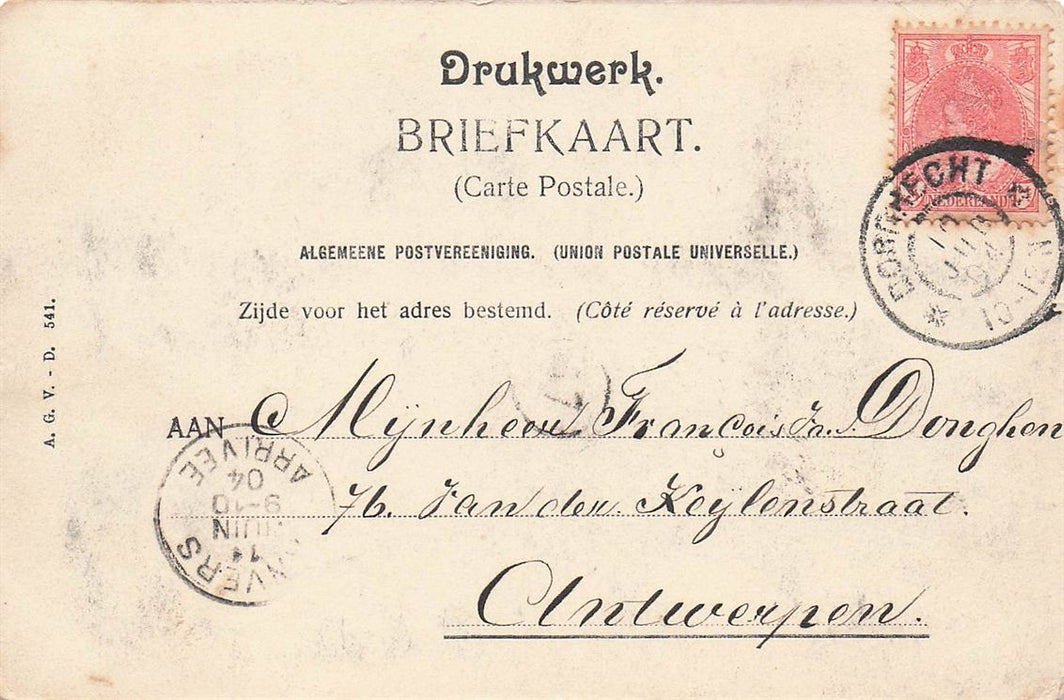 Drukwerk.
BRIEFKAART.
(Carte Postale.)
ALGEMEENE POSTVEREENIGING. (UNION POSTALE UNIVERSELLE.)
Zijde voor het adres bestemd. (Côté réservé à l'adresse.)
A. G. V. - D. 541.
AAN Mijnheer François Jr. Donghen
76. Van der Keylenstraat.
Antwerpen.
NEDERLAND
DORDRECHT
10-12
ARRIVEE
04
9-10
JUIN
11
ANVERS